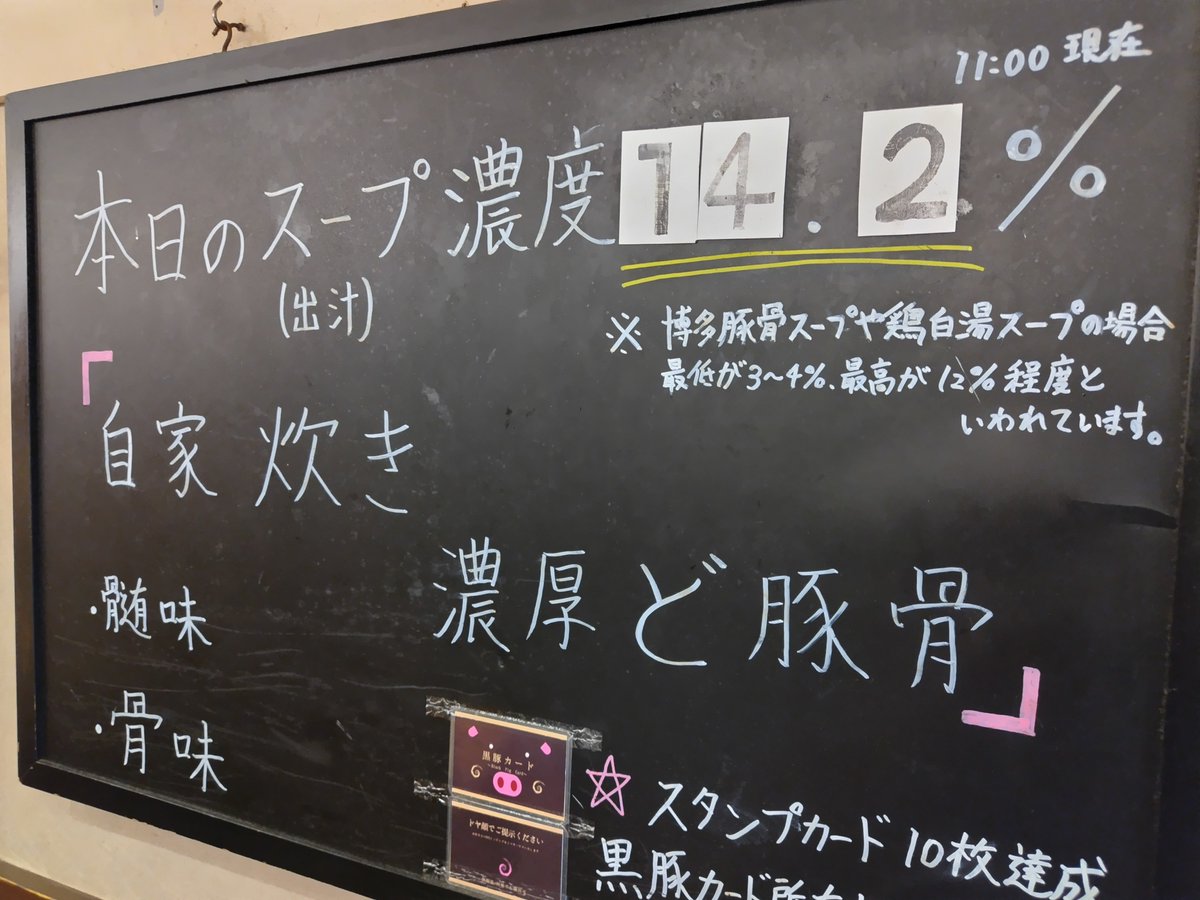 11:00 現在
本日のスープ濃度 14.2%
(出汁)
※ 博多豚骨スープや鶏白湯スープの場合
最低が3~4%、最高が12%程度と
いわれています。
「自家炊き
濃厚ど豚骨」
・髄味
・骨味
黒豚カード
~Black Pig Card~
ドヤ顔でご提示ください
☆ スタンプカード10枚達成
黒豚カード所